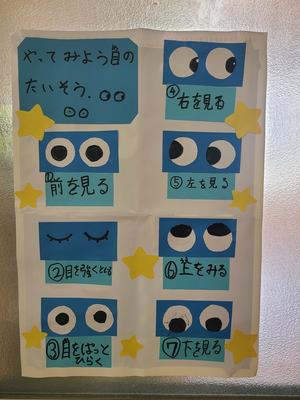 やってみよう目の
たいそう.
①前を見る
②目を強くとじる
③目をぱっと
ひらく
④右を見る
⑤左を見る
⑥上をみる
⑦下を見る